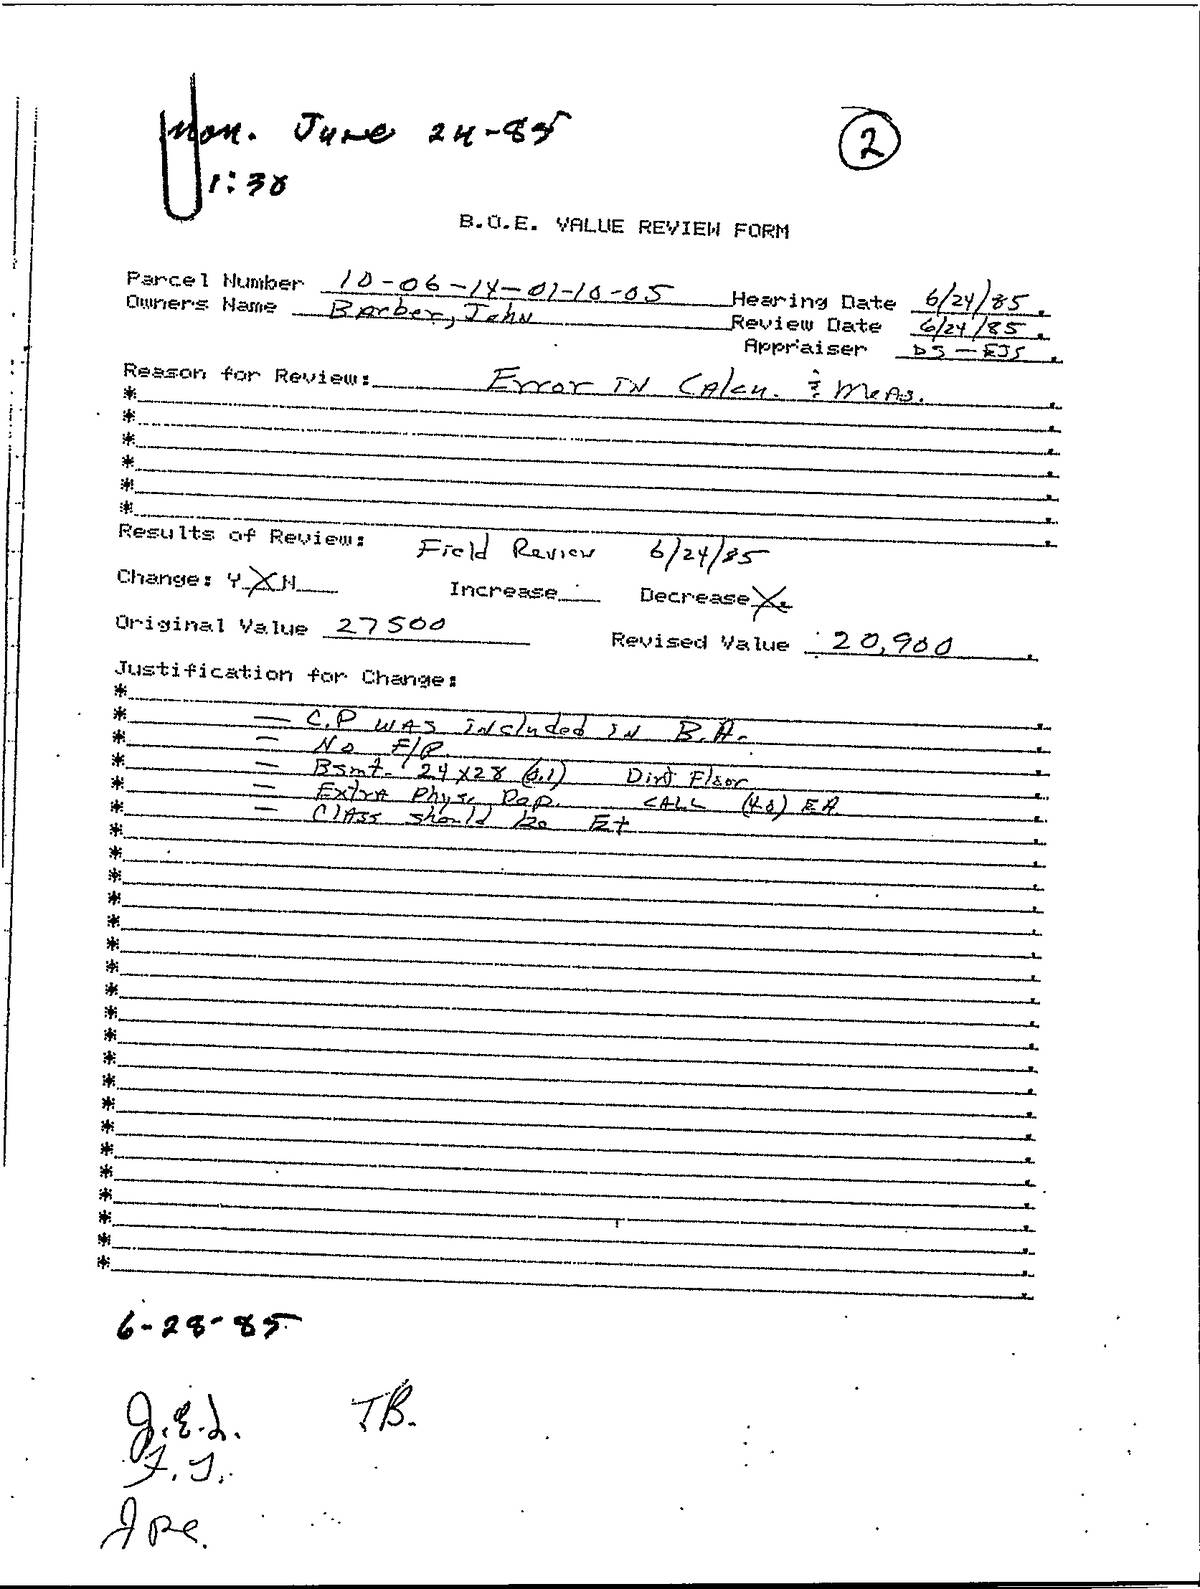 Mon. June 24-85
2
1:30
B.O.E. VALUE REVIEW FORM
Parcel Number 10-06-14-01-10-05 Hearing Date 6/24/85
Owners Name Barber, John Review Date 6/24/85
Appraiser DS-EJS
Reason for Review: Error IN CAlcu. & MeAs.
*
*
*
*
*
*
Results of Review: Field Review 6/24/85
Change: Y X N Increase Decrease X
Original Value 27500 Revised Value 20,900
Justification for Change:
*
* - C.P WAS included IN B.A.
* - No F/P.
* - Bsmt. 24x28 (S.1) Dirt Floor
* - ExtrA Phys. Dep. CALL (40) EA
* - ClAss should be E+
*
*
*
*
*
*
*
*
*
*
*
*
*
*
*
*
*
*
*
6-28-85
J.E.L. TB.
F.J.